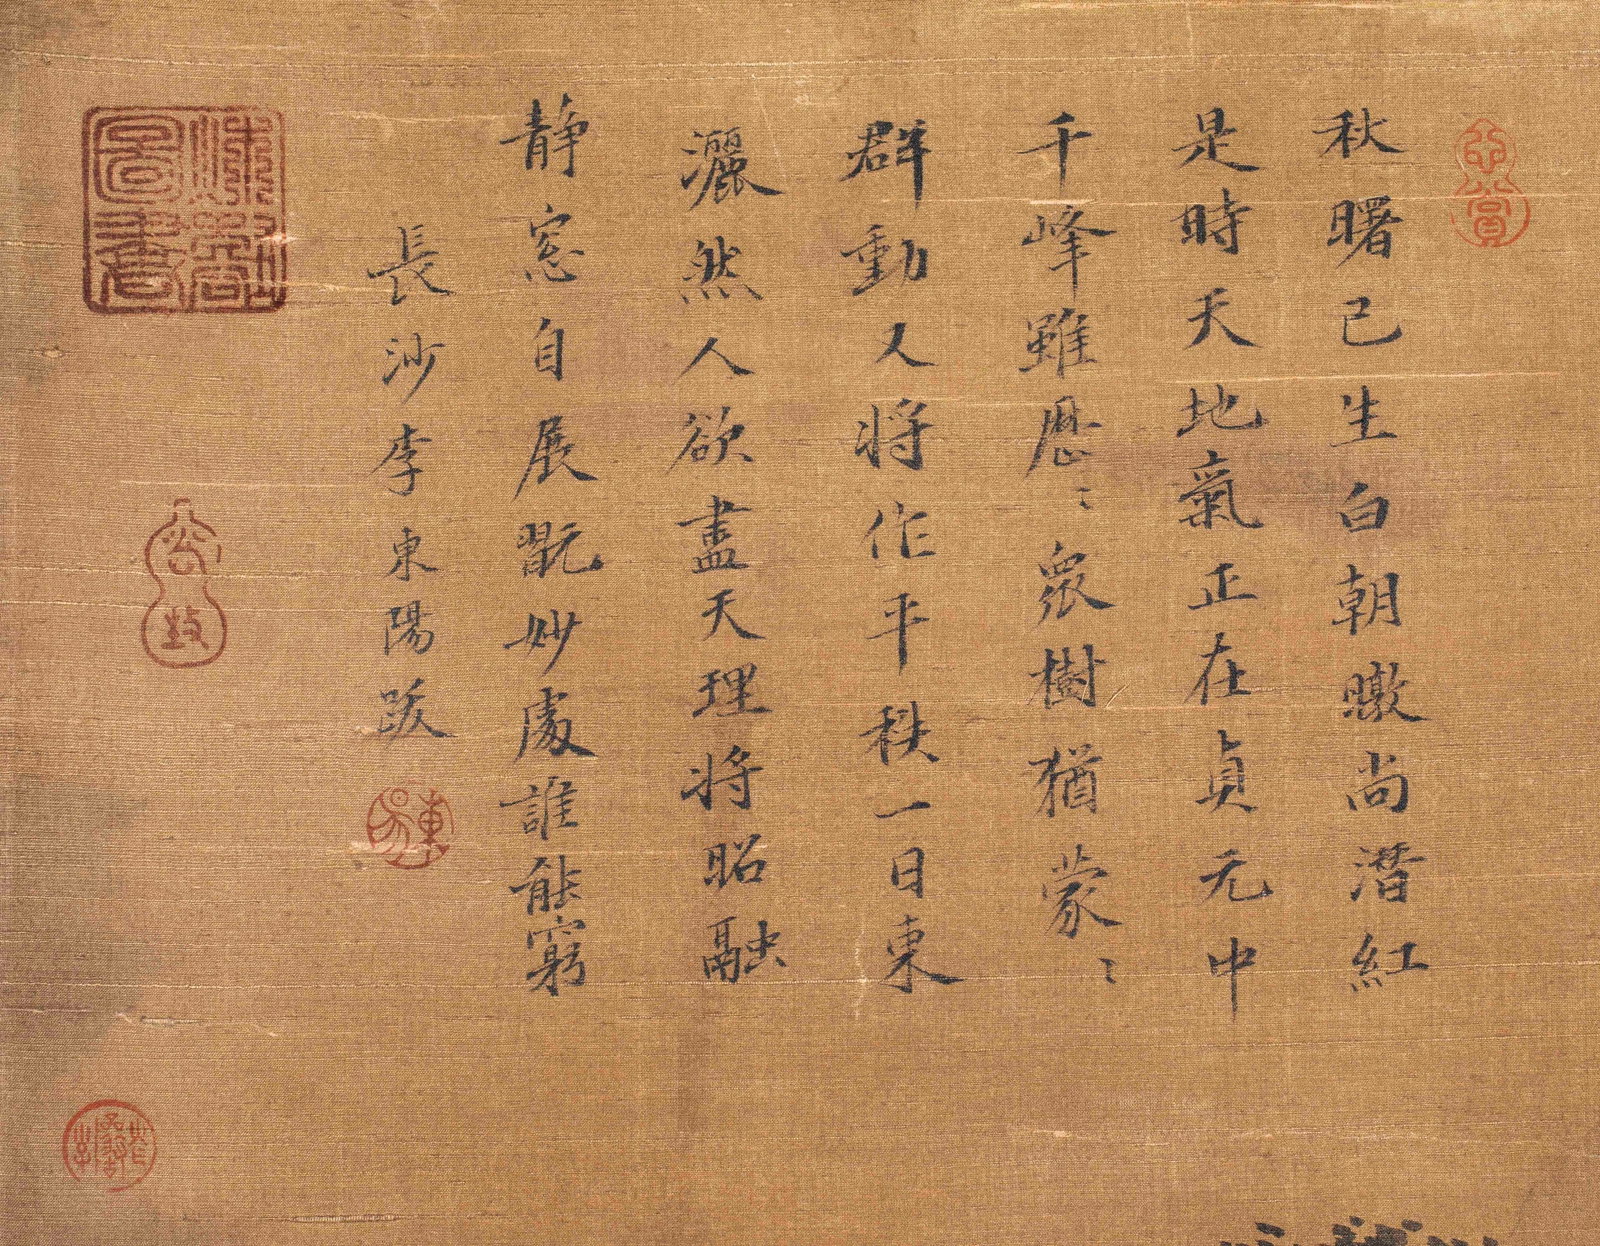 秋曙已生白朝暾尚潛紅
是時天地氣正在貞元中
千峰雖歷〻眾樹猶蒙〻
群動人將作平秩一日東
灑然人欲盡天理將昭融
静窓自展翫妙處誰能窮
長沙李東陽跋
東陽